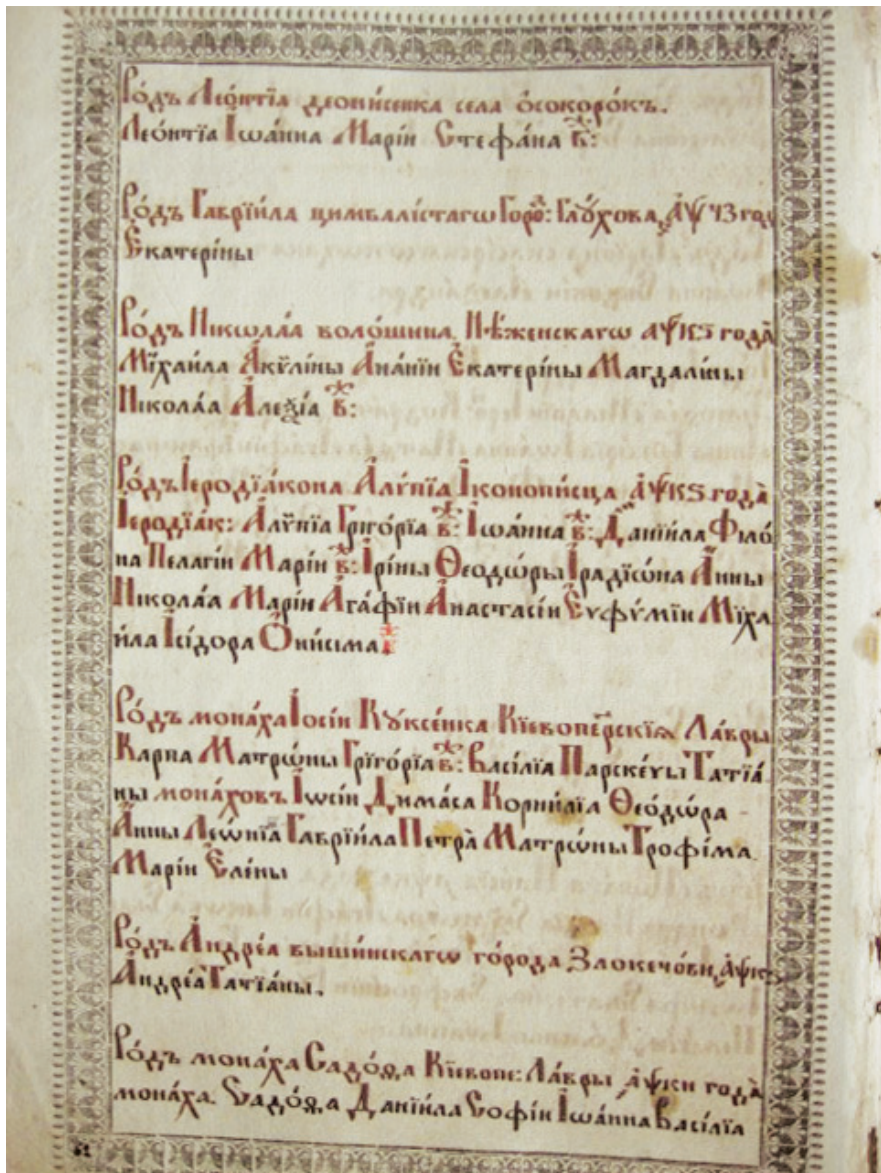 Ро́дъ Лео́нтїа деони́сенка села ѻ҆соко́рокъ.
Лео́нтїа Іѡа́нна Марі́и Стефа́на в҃:
Ро́дъ Гаврїи́ла цимбалі́стагѡ Горо: Глꙋ́хова
Екатері́ны
Ро́дъ Нікѡла́а воло́шина Нѣ́женскагѡ аѱкѕ года̀
Мїха́ила А҆кѷли́ны А҆на́нїи Е҆катері́ны Магдали́ны
Нікола́а А҆леѯі́а в҃:
Ро́дъ Іеродїа́кона А҆лѵ́пїа І҆конопи́сца а҆ѱкѕ года̀
І҆еродїа́к: А҆лѵ́пїа Григо́рїа в҃: Іѡа́нна в҃: Данїи́ла Філо́
на Пелагі́и Марі́и в҃: І҆рі́ны Ѳеодѡ́ры І҆радїѡ́на А҆́нны
Нікола́а Марі́и А҆га́фїи А҆настасі́и Е҆ѵфѵ́мїи Мїха
и́ла І҆сі́дора Ѻ҆ни́сима в҃
Ро́дъ мона́ха Іѻсі́и Кꙋ́ксе́нка Кїевопе́рскїѧ Ла́вры
Карпа Матрѡ́ны Грїго́рїа в҃: Васі́лїа Параске́ѵы Татїа́
ны мона́ховъ Іѡсі́и Дима́са Корни́лїа Ѳео́дѡра
А҆́нны Леѡ́нїа Гаврїи́ла Петра̀ Матрѡ́ны Трофі́ма
Марі́и Е҆ле́ны
Ро́дъ А҆ндре́а выши́нскагѡ го́рода
А҆ндре́а Татїа́ны.
Ро́дъ мона́ха Садо́ѳа Кїевопе: Ла́вры а҆ѱкн года̀
мона́ха Садо́ѳа Данїи́ла Софі́и Іѡа́нна Васі́лїа